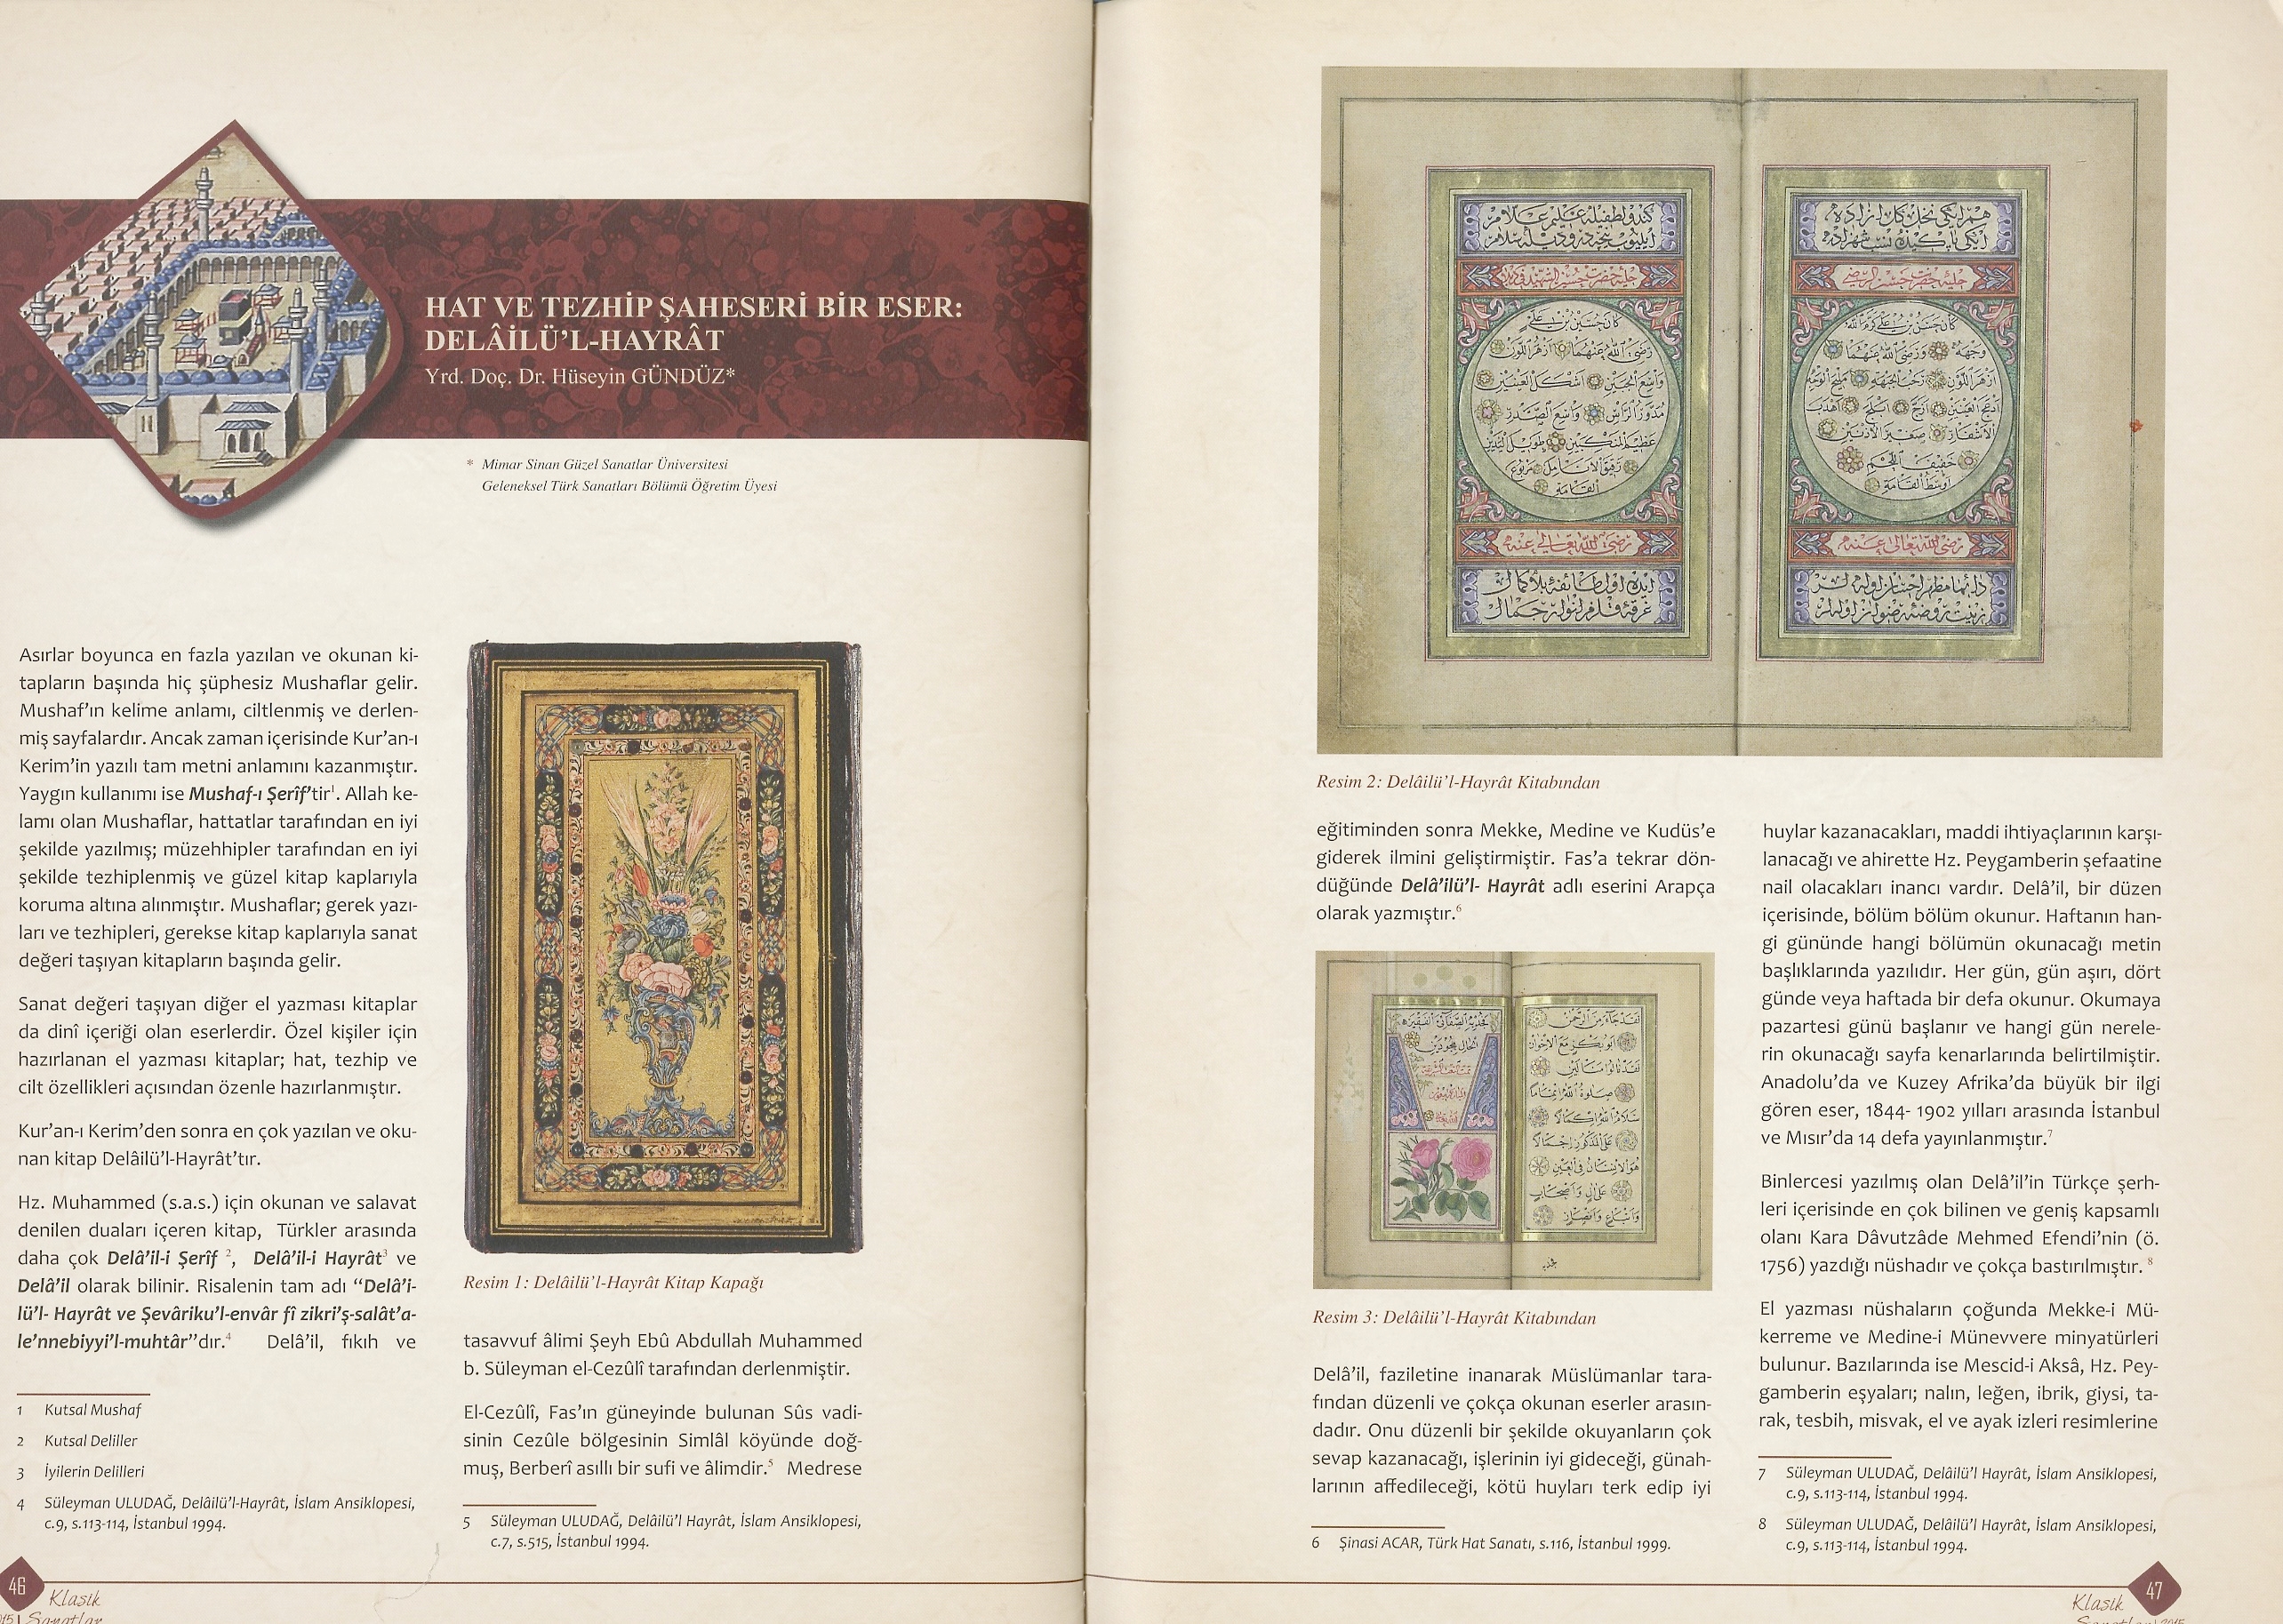 HAT VE TEZHİP ŞAHESERİ BİR ESER:
DELÂİLÜ’L-HAYRÂT
Yrd. Doç. Dr. Hüseyin GÜNDÜZ*
* Mimar Sinan Güzel Sanatlar Üniversitesi
Geleneksel Türk Sanatları Bölümü Öğretim Üyesi
Asırlar boyunca en fazla yazılan ve okunan ki-
tapların başında hiç şüphesiz Mushaflar gelir.
Mushaf’ın kelime anlamı, ciltlenmiş ve derlen-
miş sayfalardır. Ancak zaman içerisinde Kur’an-ı
Kerim’in yazılı tam metni anlamını kazanmıştır.
Yaygın kullanımı ise Mushaf-ı Şerîf’tir¹. Allah ke-
lamı olan Mushaflar, hattatlar tarafından en iyi
şekilde yazılmış; müzehhipler tarafından en iyi
şekilde tezhiplenmiş ve güzel kitap kaplarıyla
koruma altına alınmıştır. Mushaflar; gerek yazı-
ları ve tezhipleri, gerekse kitap kaplarıyla sanat
değeri taşıyan kitapların başında gelir.
Sanat değeri taşıyan diğer el yazması kitaplar
da dinî içeriği olan eserlerdir. Özel kişiler için
hazırlanan el yazması kitaplar; hat, tezhip ve
cilt özellikleri açısından özenle hazırlanmıştır.
Kur’an-ı Kerim’den sonra en çok yazılan ve oku-
nan kitap Delâilü’l-Hayrât’tır.
Hz. Muhammed (s.a.s.) için okunan ve salavat
denilen duaları içeren kitap, Türkler arasında
daha çok Delâ’il-i Şerîf ², Delâ’il-i Hayrât³ ve
Delâ’il olarak bilinir. Risalenin tam adı “Delâ’i-
lü’l- Hayrât ve Şevâriku’l-envâr fî zikri’ş-salât’a-
le’nnebiyyi’l-muhtâr”dır.⁴ Delâ’il, fıkıh ve
1 Kutsal Mushaf
2 Kutsal Deliller
3 İyilerin Delilleri
4 Süleyman ULUDAĞ, Delâilü’l-Hayrât, İslam Ansiklopesi,
c.9, s.113-114, İstanbul 1994.
46
Klasik
Sanatlar
Resim 1: Delâilü’l-Hayrât Kitap Kapağı
tasavvuf âlimi Şeyh Ebû Abdullah Muhammed
b. Süleyman el-Cezûlî tarafından derlenmiştir.
El-Cezûlî, Fas’ın güneyinde bulunan Sûs vadi-
sinin Cezûle bölgesinin Simlâl köyünde doğ-
muş, Berberî asıllı bir sufi ve âlimdir.⁵ Medrese
5 Süleyman ULUDAĞ, Delâilü’l Hayrât, İslam Ansiklopesi,
c.7, s.515, İstanbul 1994.
Resim 2: Delâilü’l-Hayrât Kitabından
eğitiminden sonra Mekke, Medine ve Kudüs’e
giderek ilmini geliştirmiştir. Fas’a tekrar dön-
düğünde Delâ’ilü’l- Hayrât adlı eserini Arapça
olarak yazmıştır.⁶
Resim 3: Delâilü’l-Hayrât Kitabından
Delâ’il, faziletine inanarak Müslümanlar tara-
fından düzenli ve çokça okunan eserler arasın-
dadır. Onu düzenli bir şekilde okuyanların çok
sevap kazanacağı, işlerinin iyi gideceği, günah-
larının affedileceği, kötü huyları terk edip iyi
6 Şinasi ACAR, Türk Hat Sanatı, s.116, İstanbul 1999.
huylar kazanacakları, maddi ihtiyaçlarının karşı-
lanacağı ve ahirette Hz. Peygamberin şefaatine
nail olacakları inancı vardır. Delâ’il, bir düzen
içerisinde, bölüm bölüm okunur. Haftanın han-
gi gününde hangi bölümün okunacağı metin
başlıklarında yazılıdır. Her gün, gün aşırı, dört
günde veya haftada bir defa okunur. Okumaya
pazartesi günü başlanır ve hangi gün nerele-
rin okunacağı sayfa kenarlarında belirtilmiştir.
Anadolu’da ve Kuzey Afrika’da büyük bir ilgi
gören eser, 1844- 1902 yılları arasında İstanbul
ve Mısır’da 14 defa yayınlanmıştır.⁷
Binlercesi yazılmış olan Delâ’il’in Türkçe şerh-
leri içerisinde en çok bilinen ve geniş kapsamlı
olanı Kara Dâvutzâde Mehmed Efendi’nin (ö.
1756) yazdığı nüshadır ve çokça bastırılmıştır. ⁸
El yazması nüshaların çoğunda Mekke-i Mü-
kerreme ve Medine-i Münevvere minyatürleri
bulunur. Bazılarında ise Mescid-i Aksâ, Hz. Pey-
gamberin eşyaları; nalın, leğen, ibrik, giysi, ta-
rak, tesbih, misvak, el ve ayak izleri resimlerine
7 Süleyman ULUDAĞ, Delâilü’l Hayrât, İslam Ansiklopesi,
c.9, s.113-114, İstanbul 1994.
8 Süleyman ULUDAĞ, Delâilü’l Hayrât, İslam Ansiklopesi,
c.9, s.113-114, İstanbul 1994.
Klasik
47